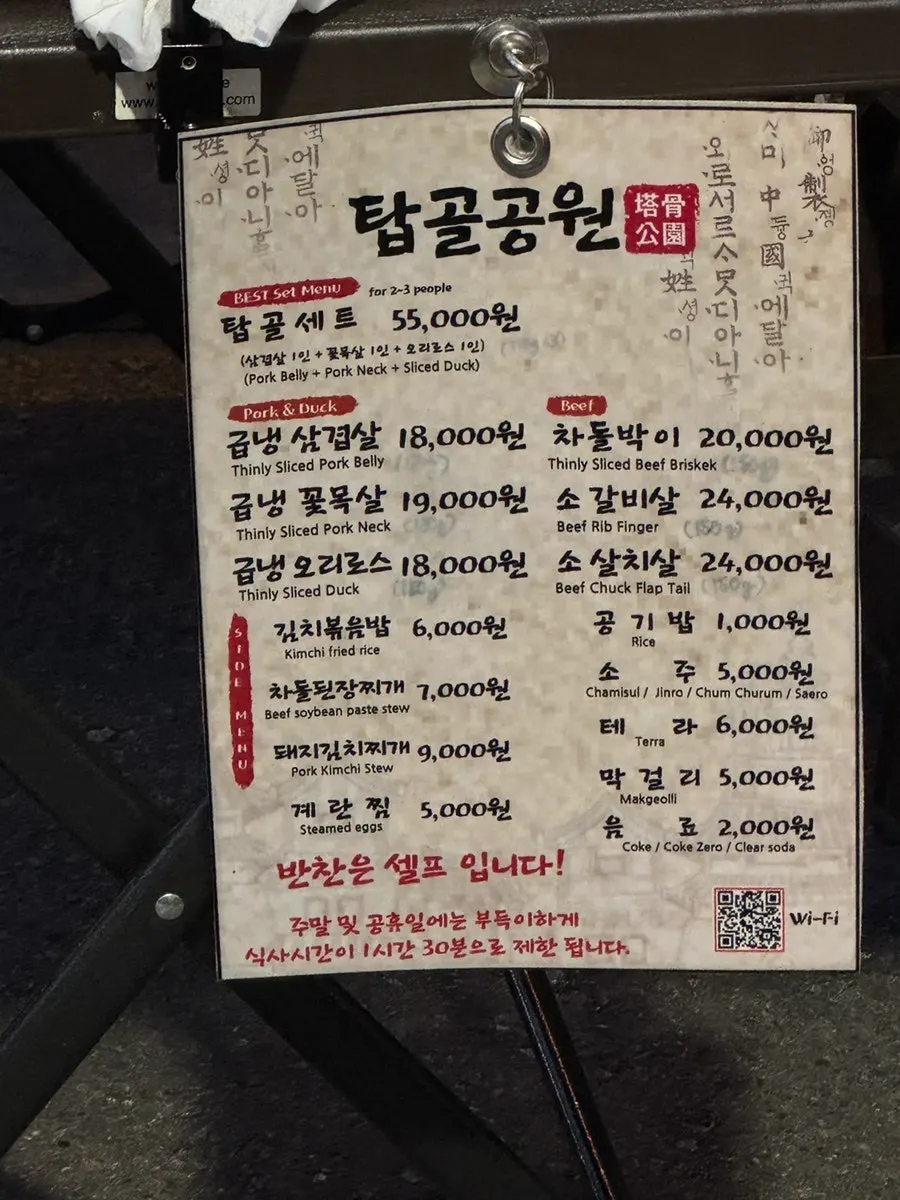 www.
.com
탑골공원
塔骨
公園
BEST Set Menu for 2~3 people
탑골세트 55,000원
(삼겹살 1인 + 꽃목살 1인 + 오리로스 1인)
(Pork Belly + Pork Neck + Sliced Duck)
Pork & Duck
급냉 삼겹살 18,000원
Thinly Sliced Pork Belly
급냉 꽃목살 19,000원
Thinly Sliced Pork Neck
급냉 오리로스 18,000원
Thinly Sliced Duck
Beef
차돌박이 20,000원
Thinly Sliced Beef Briskek
소 갈비살 24,000원
Beef Rib Finger (150g)
소 살치살 24,000원
Beef Chuck Flap Tail (150g)
SIDE MENU
김치볶음밥 6,000원
Kimchi fried rice
차돌된장찌개 7,000원
Beef soybean paste stew
돼지김치찌개 9,000원
Pork Kimchi Stew
계란찜 5,000원
Steamed eggs
공기밥 1,000원
Rice
소주 5,000원
Chamisul / Jinro / Chum Churum / Saero
테라 6,000원
Terra
막걸리 5,000원
Makgeolli
음료 2,000원
Coke / Coke Zero / Clear soda
반찬은 셀프 입니다!
주말 및 공휴일에는 부득이하게
식사시간이 1시간 30분으로 제한 됩니다.
Wi-Fi